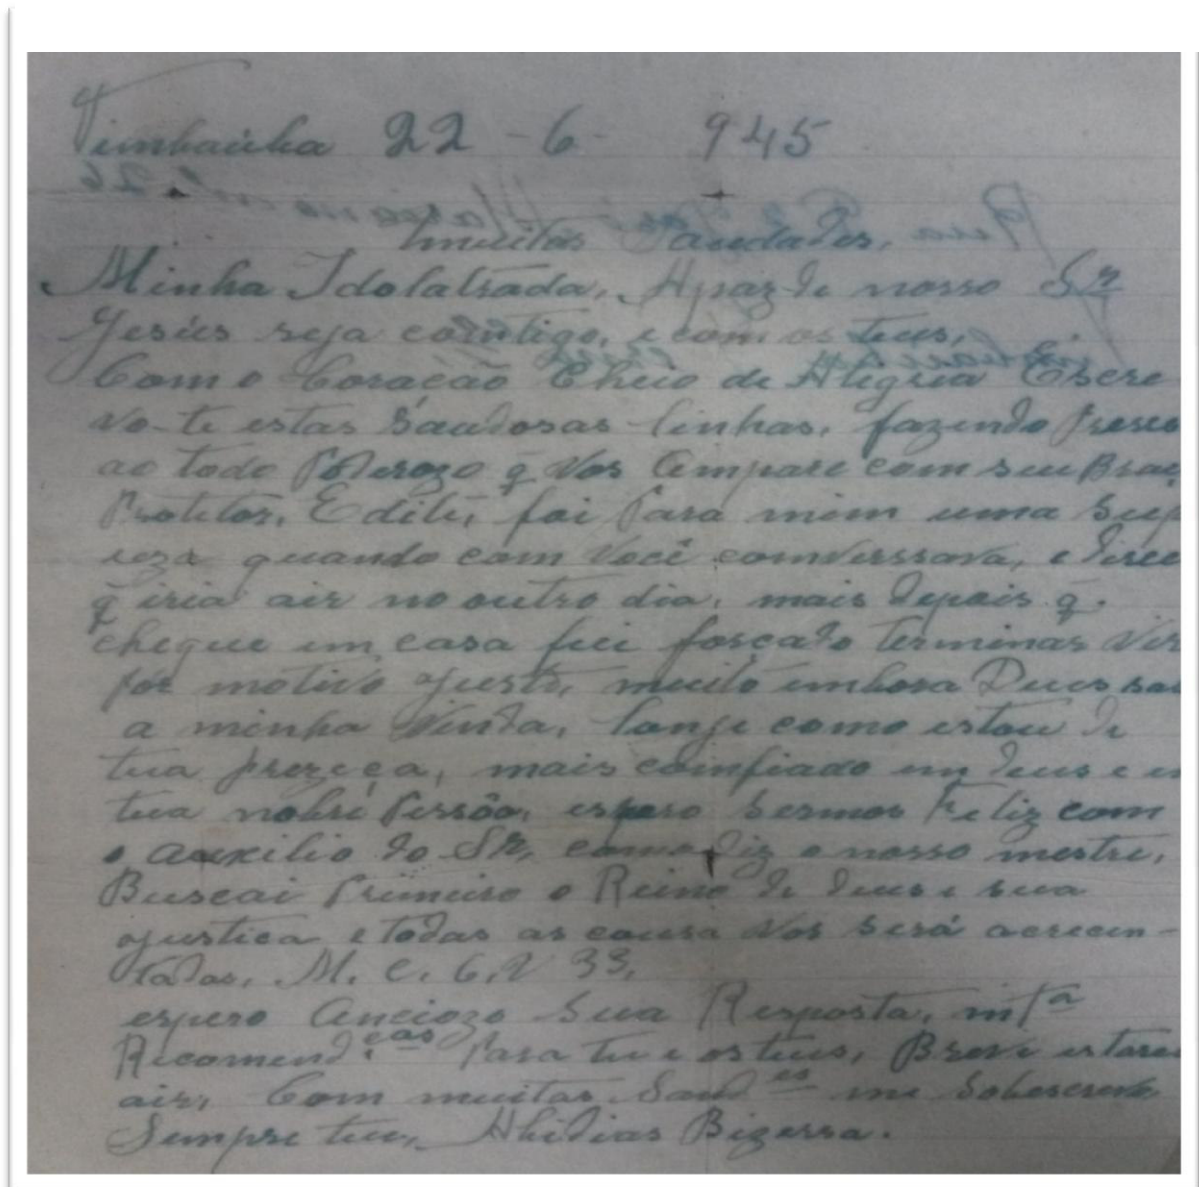 Timbaúba 22-6-945
muitas saudades,
Minha Idolatrada, A paz de nosso Sr
Jesús seja comtigo, e com os teus,
Com o Coração Cheio de Alegria Escre
vo-te estas Saudosas linhas, fazendo
ao todo Poderozo q̃ Vos Ampare com seu
Protetor, Edite, foi Para mim uma
quando com Você comverssava, e
q̃ iria air no outro dia, mais depois q̃.
chegue em casa fui forçado terminar
por motivo justo, muito embora Deus
a minha Vinda, longe como estou de
tua prezeça, mais comfiado em deus e
tua nobre Pessôa, espero Sermos Feliz com
o auxilio do Sr, como diz o nosso mestre,
Buscai Primeiro o Reino de deus e sua
justica e todas as cousa Vos será acrecen-
tadas, M. C. 6, V 33,
espero Anciozo Sua Resposta, mta
Recomend.cas Para tu e os teus, Breve
air, Com muitas Saud.es me Sobescrevo
Sempre teu, Abidias Bizerra.
Rua
26